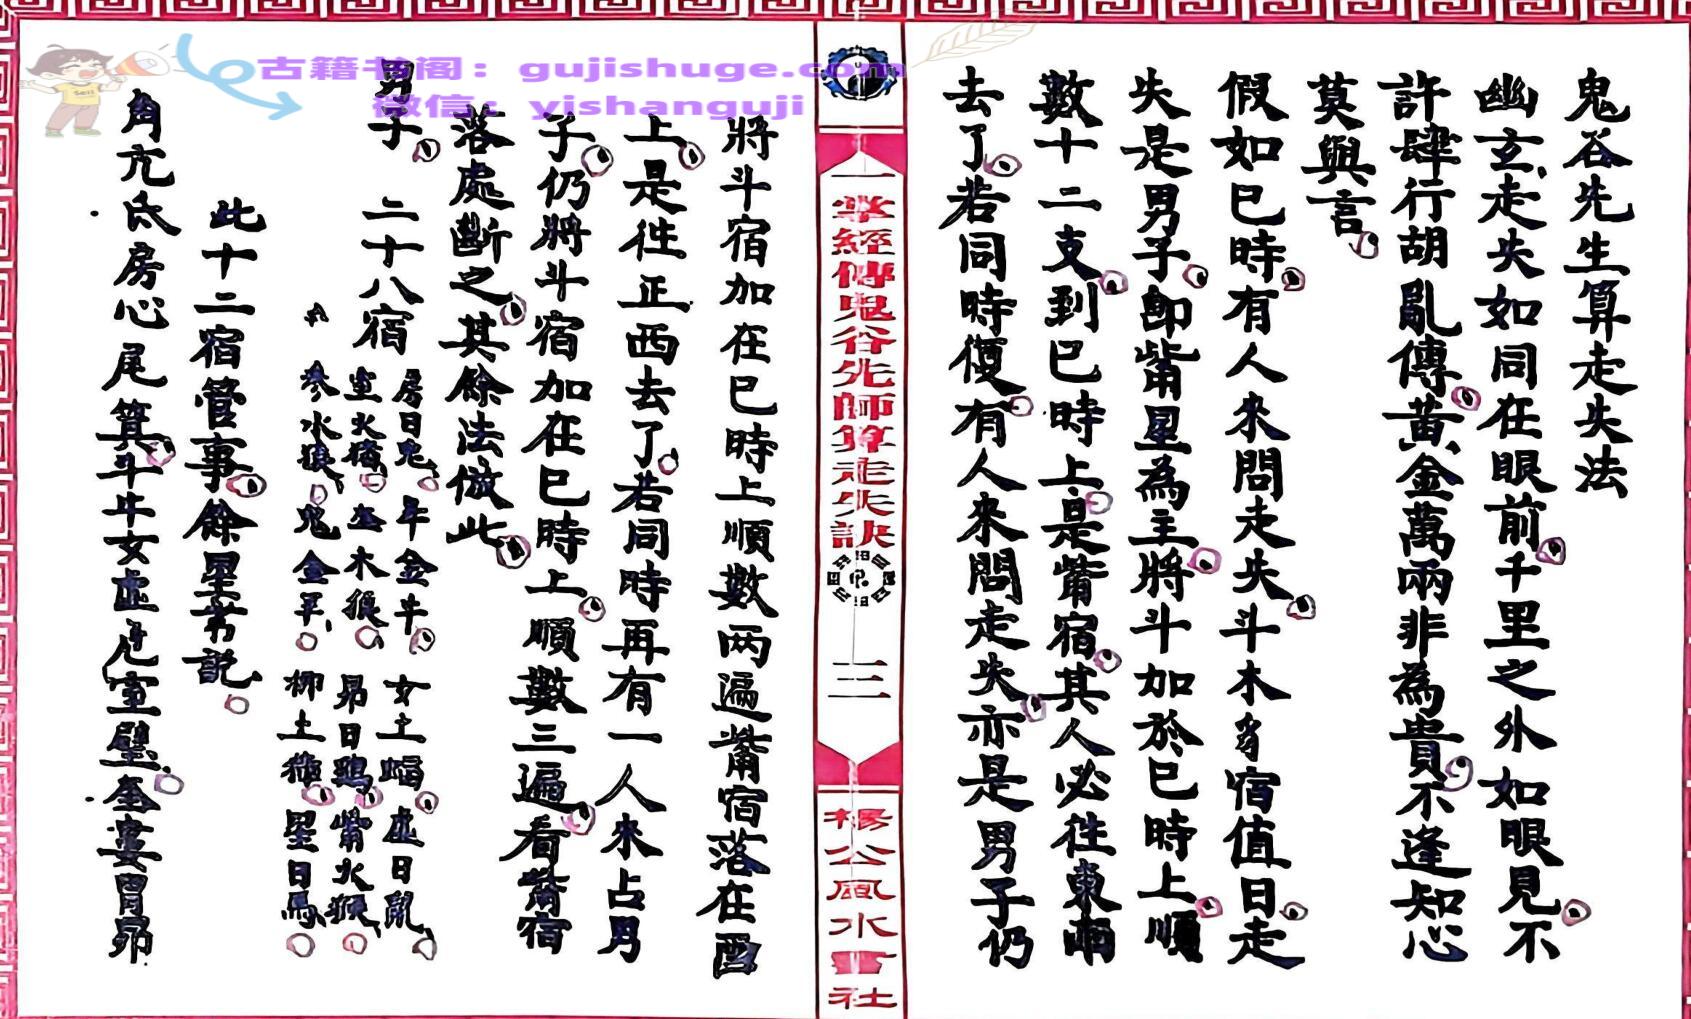 鬼谷先生算走失法
幽玄走失如同在眼前千里之外如眼見不
許肆行胡亂傳黃金萬兩非為貴不逢知心
莫與言
假如巳時有人來問走失斗木豸宿值日走
失是男子即觜星為主將斗加於巳時上順
數十二支到巳時上是觜宿其人必往東南
去了若同時復有人來問走失亦是男子仍
一掌經傳鬼谷先師算走失訣
三
楊公風水書社
將斗宿加在巳時上順數两遍觜宿落在酉
上是徃正西去了若同時再有一人來占男
子仍將斗宿加在巳時上順數三遍看觜宿
落處斷之其餘法倣此
男子
二十八宿
房日兔 牛金牛 女土蝠 虛日鼠
室火猪 奎木狼 昴日鷄 觜火猴
參水猿 鬼金羊 柳土獐 星日馬
此十二宿管事餘星莭說
角亢氐房心尾箕斗牛女虛危室壁奎婁胃昴
古籍书阁：gujishuge.com
微信：yishanguji